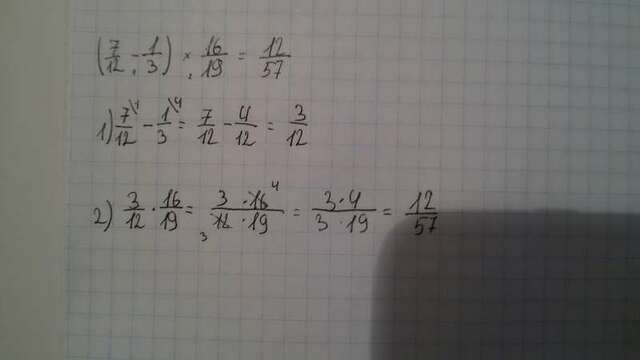 (7/12 - 1/3) × 16/19 = 12/57
1) 7\1/12 - 1\4/3 = 7/12 - 4/12 = 3/12
2) 3/12 · 16/19 = 3 · 16 4/3 12 · 19 = 3·4/3 · 19 = 12/57